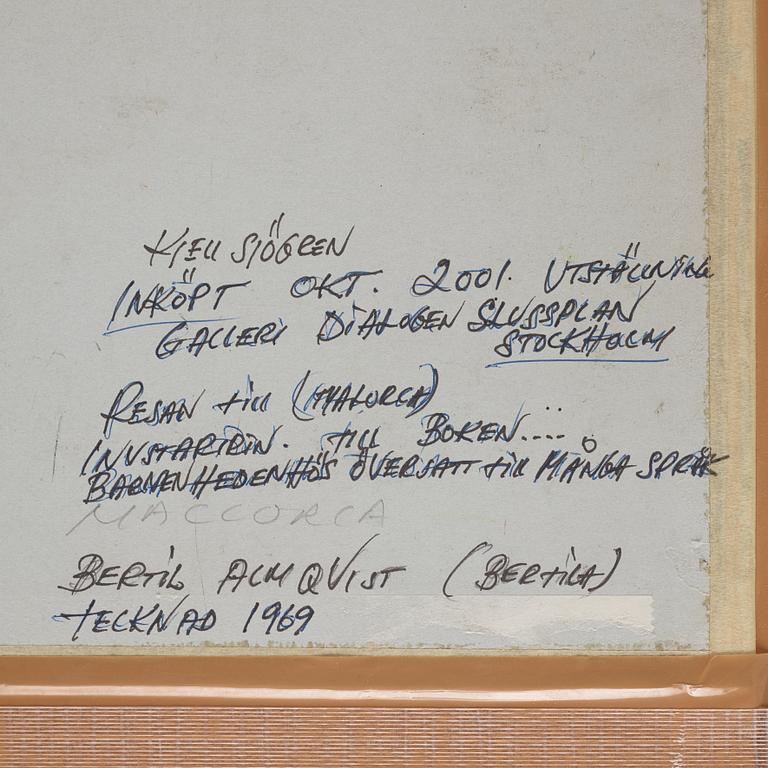 KJELL SJÖGREN
INKÖPT OKT. 2001. UTSTÄLLNING
GALLERI DIALOGEN SLUSSPLAN
STOCKHOLM
RESAN till (MALORCA)
TILL BOKEN....
BARNEN HEDENHÖS ÖVERSATT till MÅNGA SPRÅK
MALLORCA
BERTIL ALMQVIST (BERTILA)
TECKNAD 1969